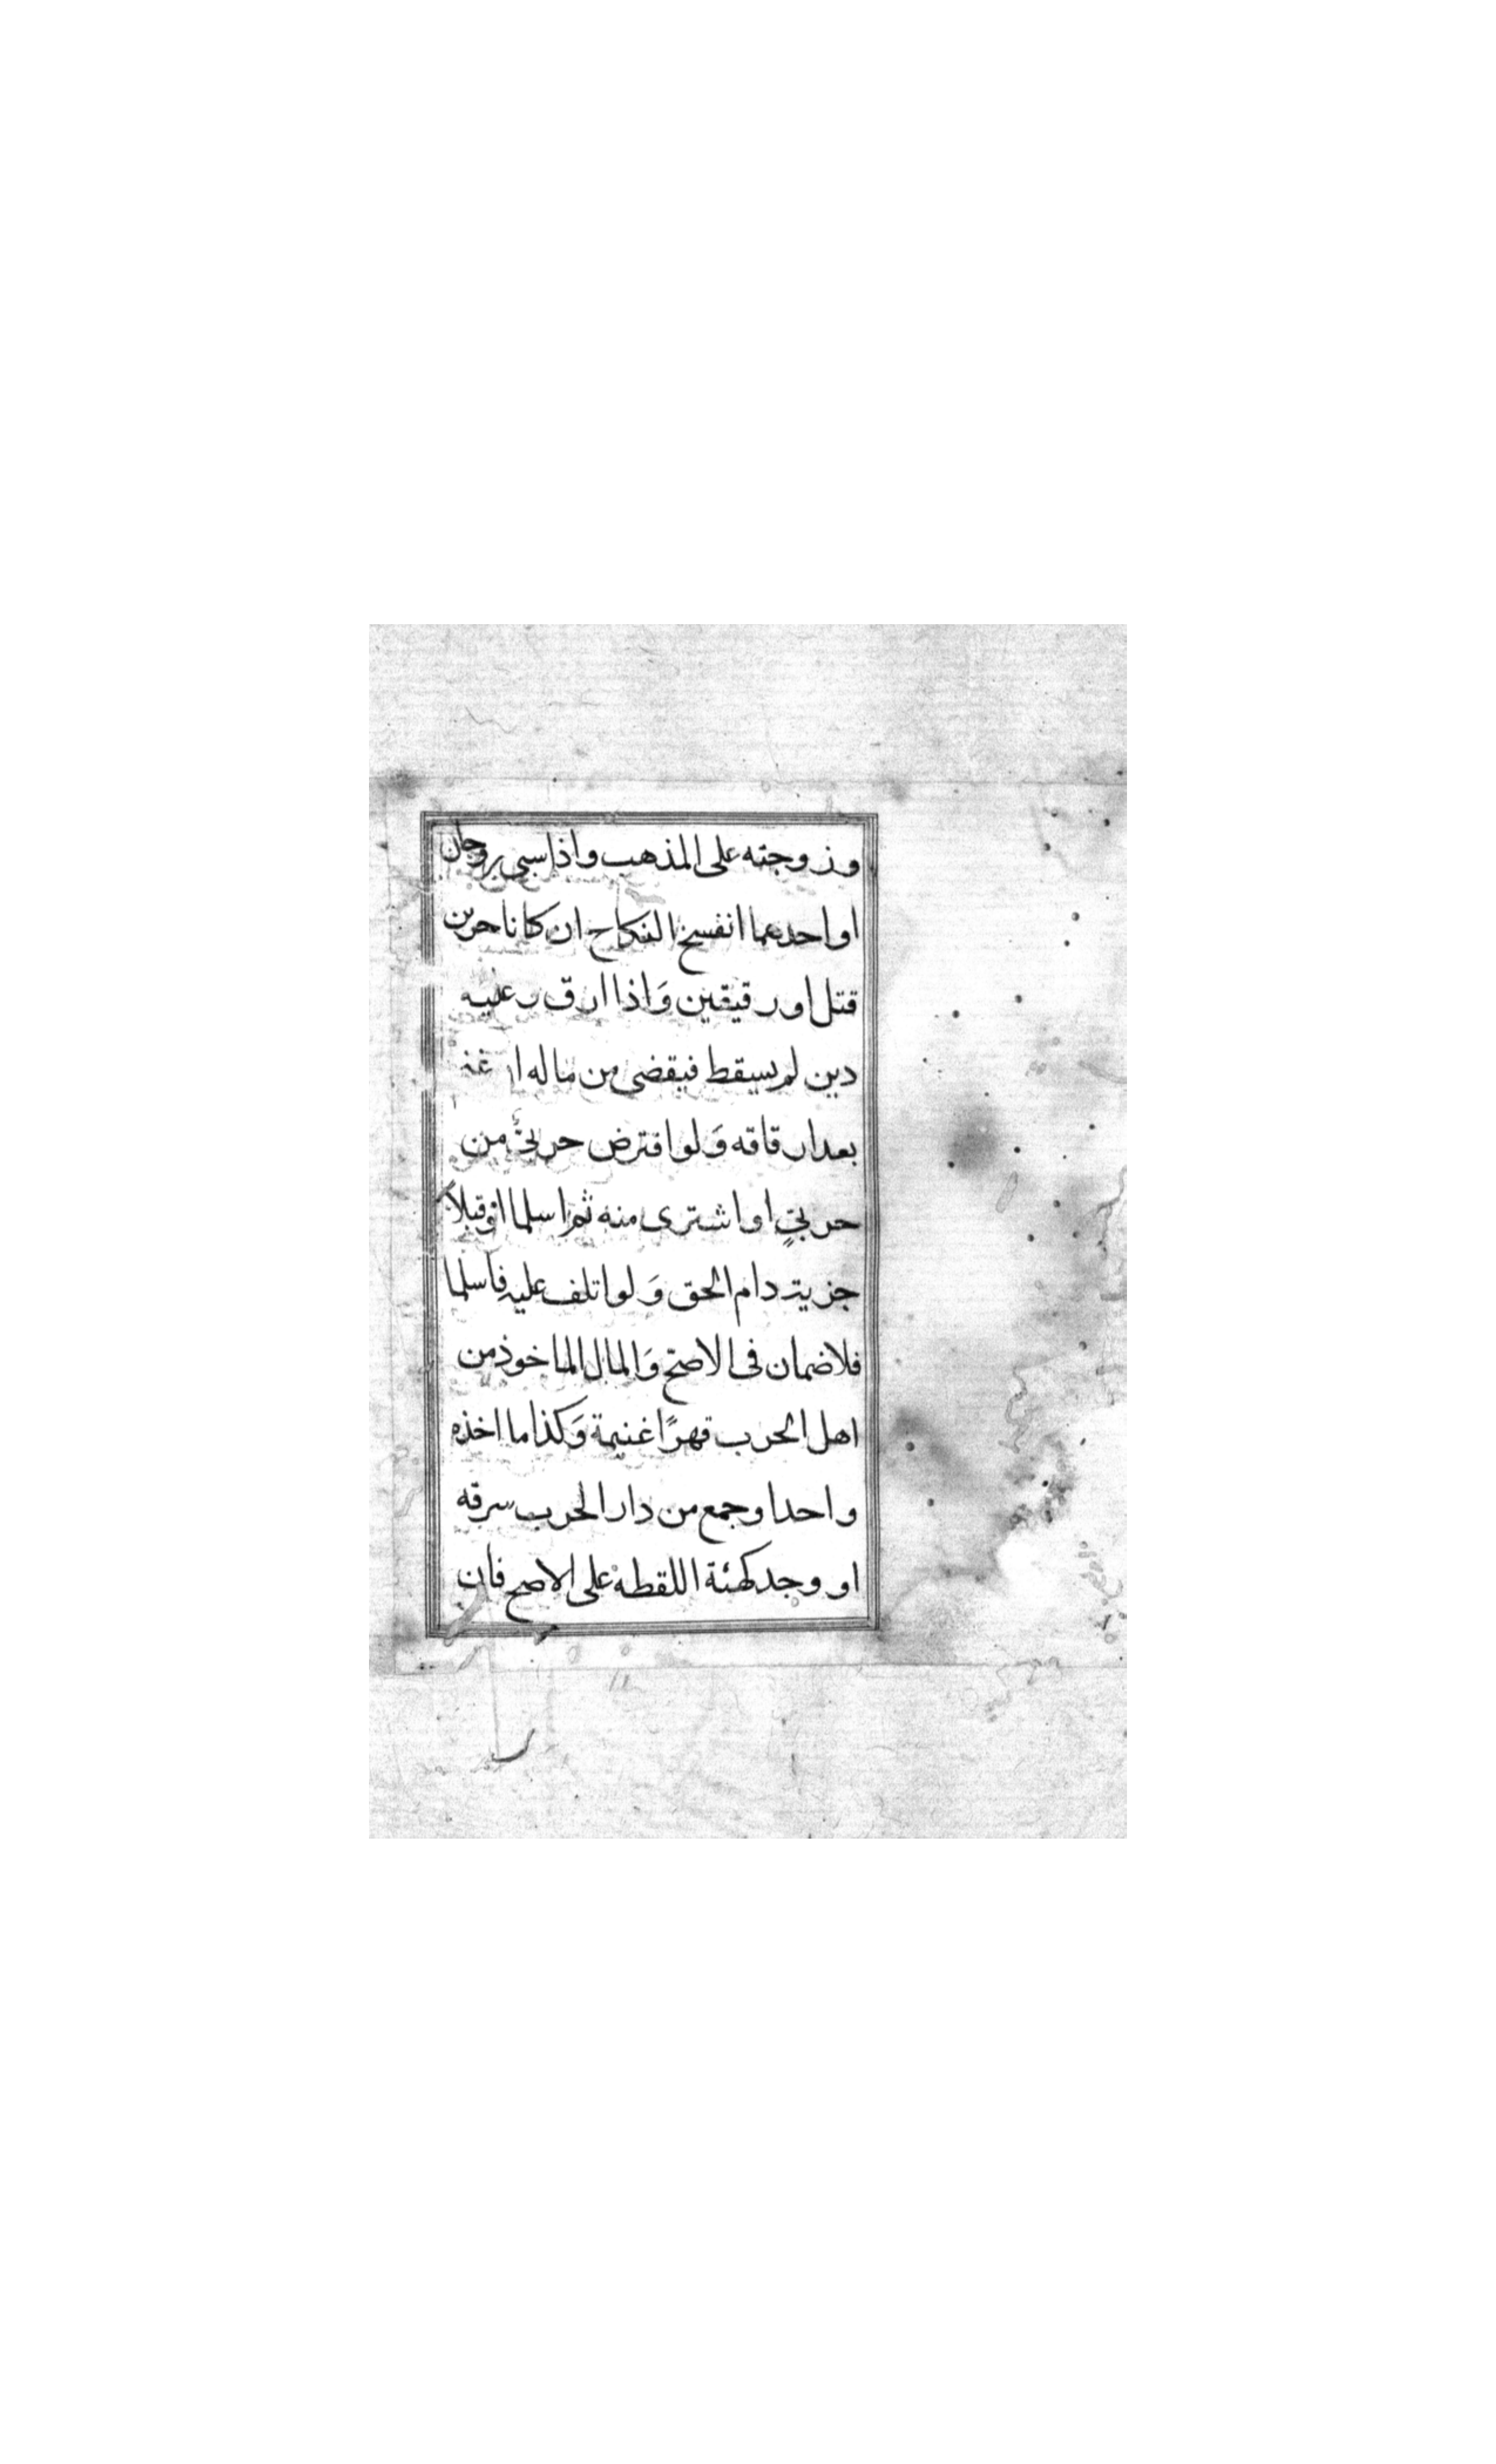 وزوجته على المذهب واذا سبى زوجان
او احدهما انفسخ النكاح ان كانا حرين
قتل او رقيقين وَاذا ارق وعليه
دين لم يسقط فيقضى من ماله
بعد ارقاقه وَلو اقترض حربىٌّ من
حربىٍّ او اشترى منه ثم اسلما او قبلا
جزية دام الحق وَلو اتلف عليه فاسلما
فلا ضمان فى الاصح وَالمال الماخوذ من
اهل الحرب قهرًا غنيمة وَكذا ما اخذه
واحد او جمع من دار الحرب سرقه
او وجد كهئة اللقطه على الاصح فان